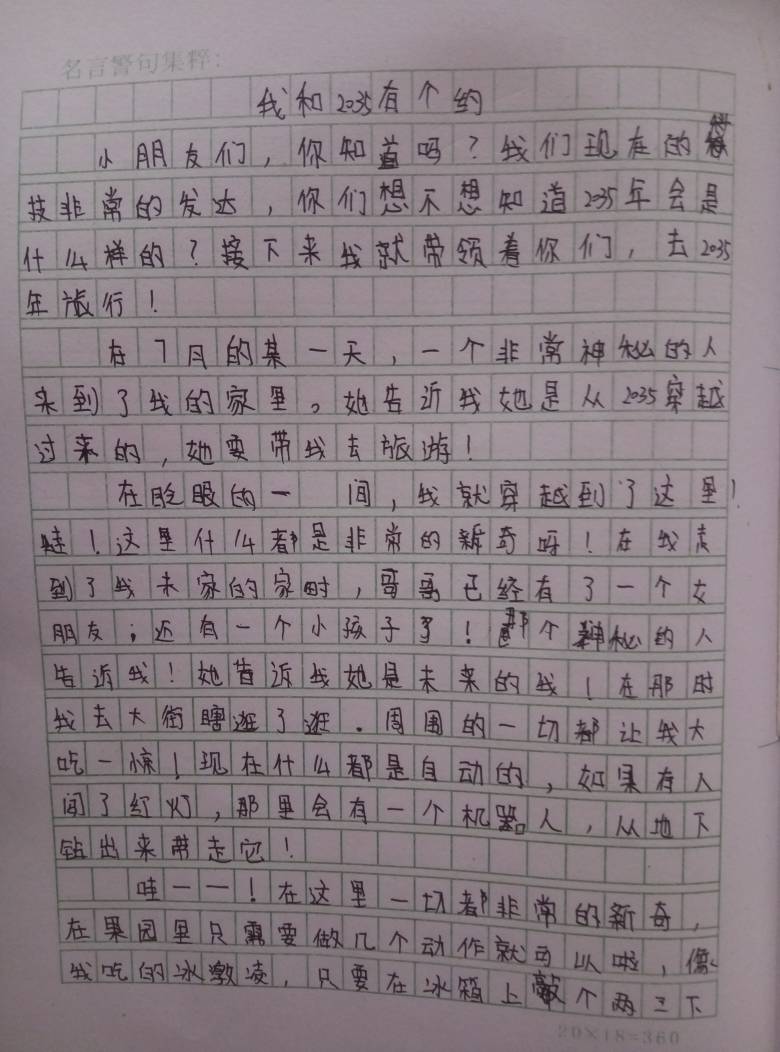 名言警句集粹:
我和2035有个约
小朋友们，你知道吗？我们现在的科
技非常的发达，你们想不想知道2035年会是
什么样的？接下来我就带领着你们，去2035
年旅行！
在7月的某一天，一个非常神秘的人
来到了我的家里。她告诉我她是从2035穿越
过来的，她要带我去旅游！
在眨眼的一 间，我就穿越到了这里！
哇！这里什么都是非常的新奇呀！在我走
到了我未家的家时，哥哥已经有了一个女
朋友；还有一个小孩子了！那个神秘的人
告诉我！她告诉我她是未来的我！在那时
我去大街瞎逛了逛．周围的一切都让我大
吃一惊！现在什么都是自动的，如果有人
闯了红灯，那里会有一个机器人，从地下
钻出来带走它！
哇一一！在这里一切都非常的新奇，
在果园里只需要做几个动作就可以啦，像
我吃的冰激凌，只要在冰箱上敲个两三下
20×18=360